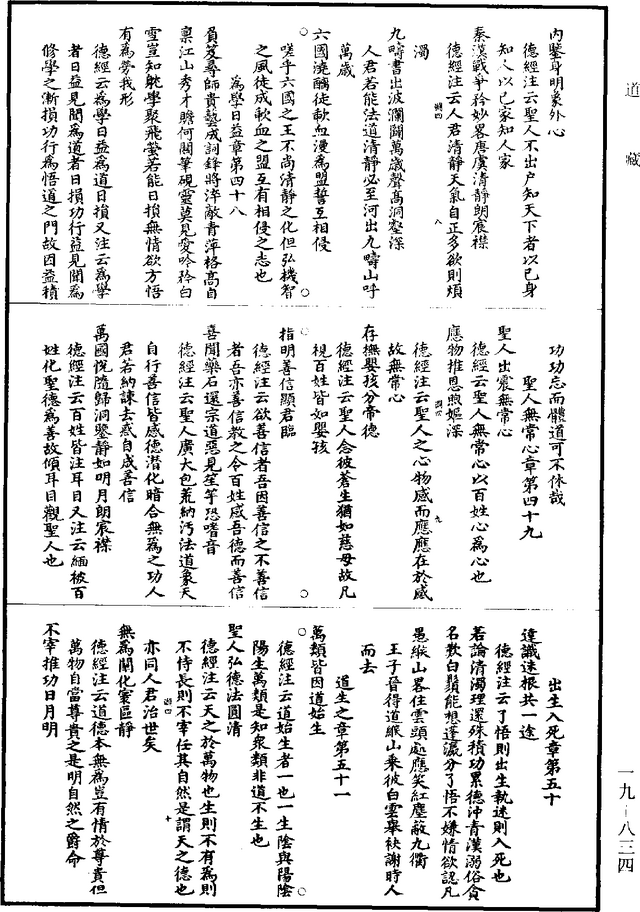 道藏
內鑒身明象外心
德經注云聖人不出户知天下者以已身
知人以已家知人家
秦漢戰爭矜妙畧唐虞清靜朗宸襟
德經注云人君清靜天氣自正多欲則煩
濁
九疇書出波瀾闊萬歲聲高洞壑深
人君若能法道清靜必至河出九疇山呼
萬歲
六國澆醨徒歃血漫為盟誓互相侵
嗟乎六國之王不尚清靜之化但弘機智
之風徒成歃血之盟互有相侵之志也
為學日益章第四十八
負笈尋師貴藝成詞鋒將淬敵青萍格高自
稟江山秀才贍何關筆硯靈莫見愛吟矜白
雪豈知躭學聚飛螢若能日損無情欲方悟
有為勞我形
德經云為學日益為道日損又注云為學
者日益見聞為道者日損功行益見聞為
修學之漸損功行為悟道之門故因益積
功功忘而體道可不休哉
聖人無常心章第四十九
聖人出震無常心
德經云聖人無常心以百姓心為心也
應物推恩煦嫗深
德經注云聖人之心物感而應應在於感
故無常心
存撫嬰孩分帝德
德經注云聖人念彼蒼生猶如慈母故凡
視百姓皆如嬰孩
指明善信顯君臨
德經注云欲善信者吾因善信之不善信
者吾亦善信教之令百姓感吾德而善信
喜聞藥石還宗道惡見笙竽恐嗜音
德經注云聖人廣大包荒納汚法道象天
自行善信皆感德潛化暗合無為之功人
君若納諫去惑自成善信
萬國悅隨歸洞鑒靜如明月朗宸襟
德經注云百姓皆注耳目又注云緬彼百
姓化聖德為善故傾耳目觀聖人也
出生入死章第五十
達識迷根共一途
德經注云了悟則出生執迷則入死也
若論清濁理還殊積功累德沖青漢溺俗貪
名歎白鬚能想蓬瀛分了悟不嫌情欲認凡
愚緱山畧住雲頭處應笑紅塵蔽九衢
王子晉得道緱山乘彼白雲舉袂謝時人
而去
道生之章第五十一
萬類皆因道始生
德經注云道始生者一也一生陰與陽陰
陽生萬類是知衆類非道不生也
聖人弘德法圓清
德經注云天之於萬物也生則不有為則
不恃長則不宰任其自然是謂天之德也
亦同人君治世矣
無為闡化寰區靜
德經注云道德本無為豈有情於尊貴但
萬物自當尊貴之是明自然之爵命
不宰推功日月明
一九—八三四